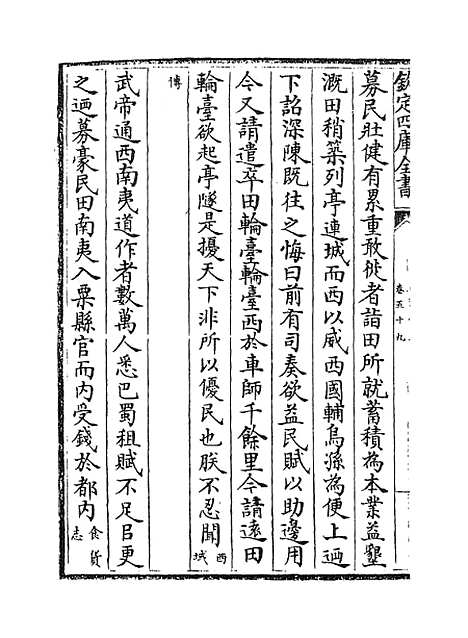 欽定四庫全書
卷五十九
募民壯健有累重敢徙者詣田所就蓄積為本業益墾
溉田稍築列亭連城而西以威西國輔烏孫為便上迺
下詔深陳既往之悔曰前有司奏欲益民賦以助邊用
今又請遣卒田輪臺輪臺西於車師千餘里今請遠田
輪臺欲起亭隧是擾天下非所以優民也朕不忍聞西域
傳
武帝通西南夷道作者數萬人悉巴蜀租賦不足㠯更
之迺募豪民田南夷入粟縣官而内受錢於都内食貨志